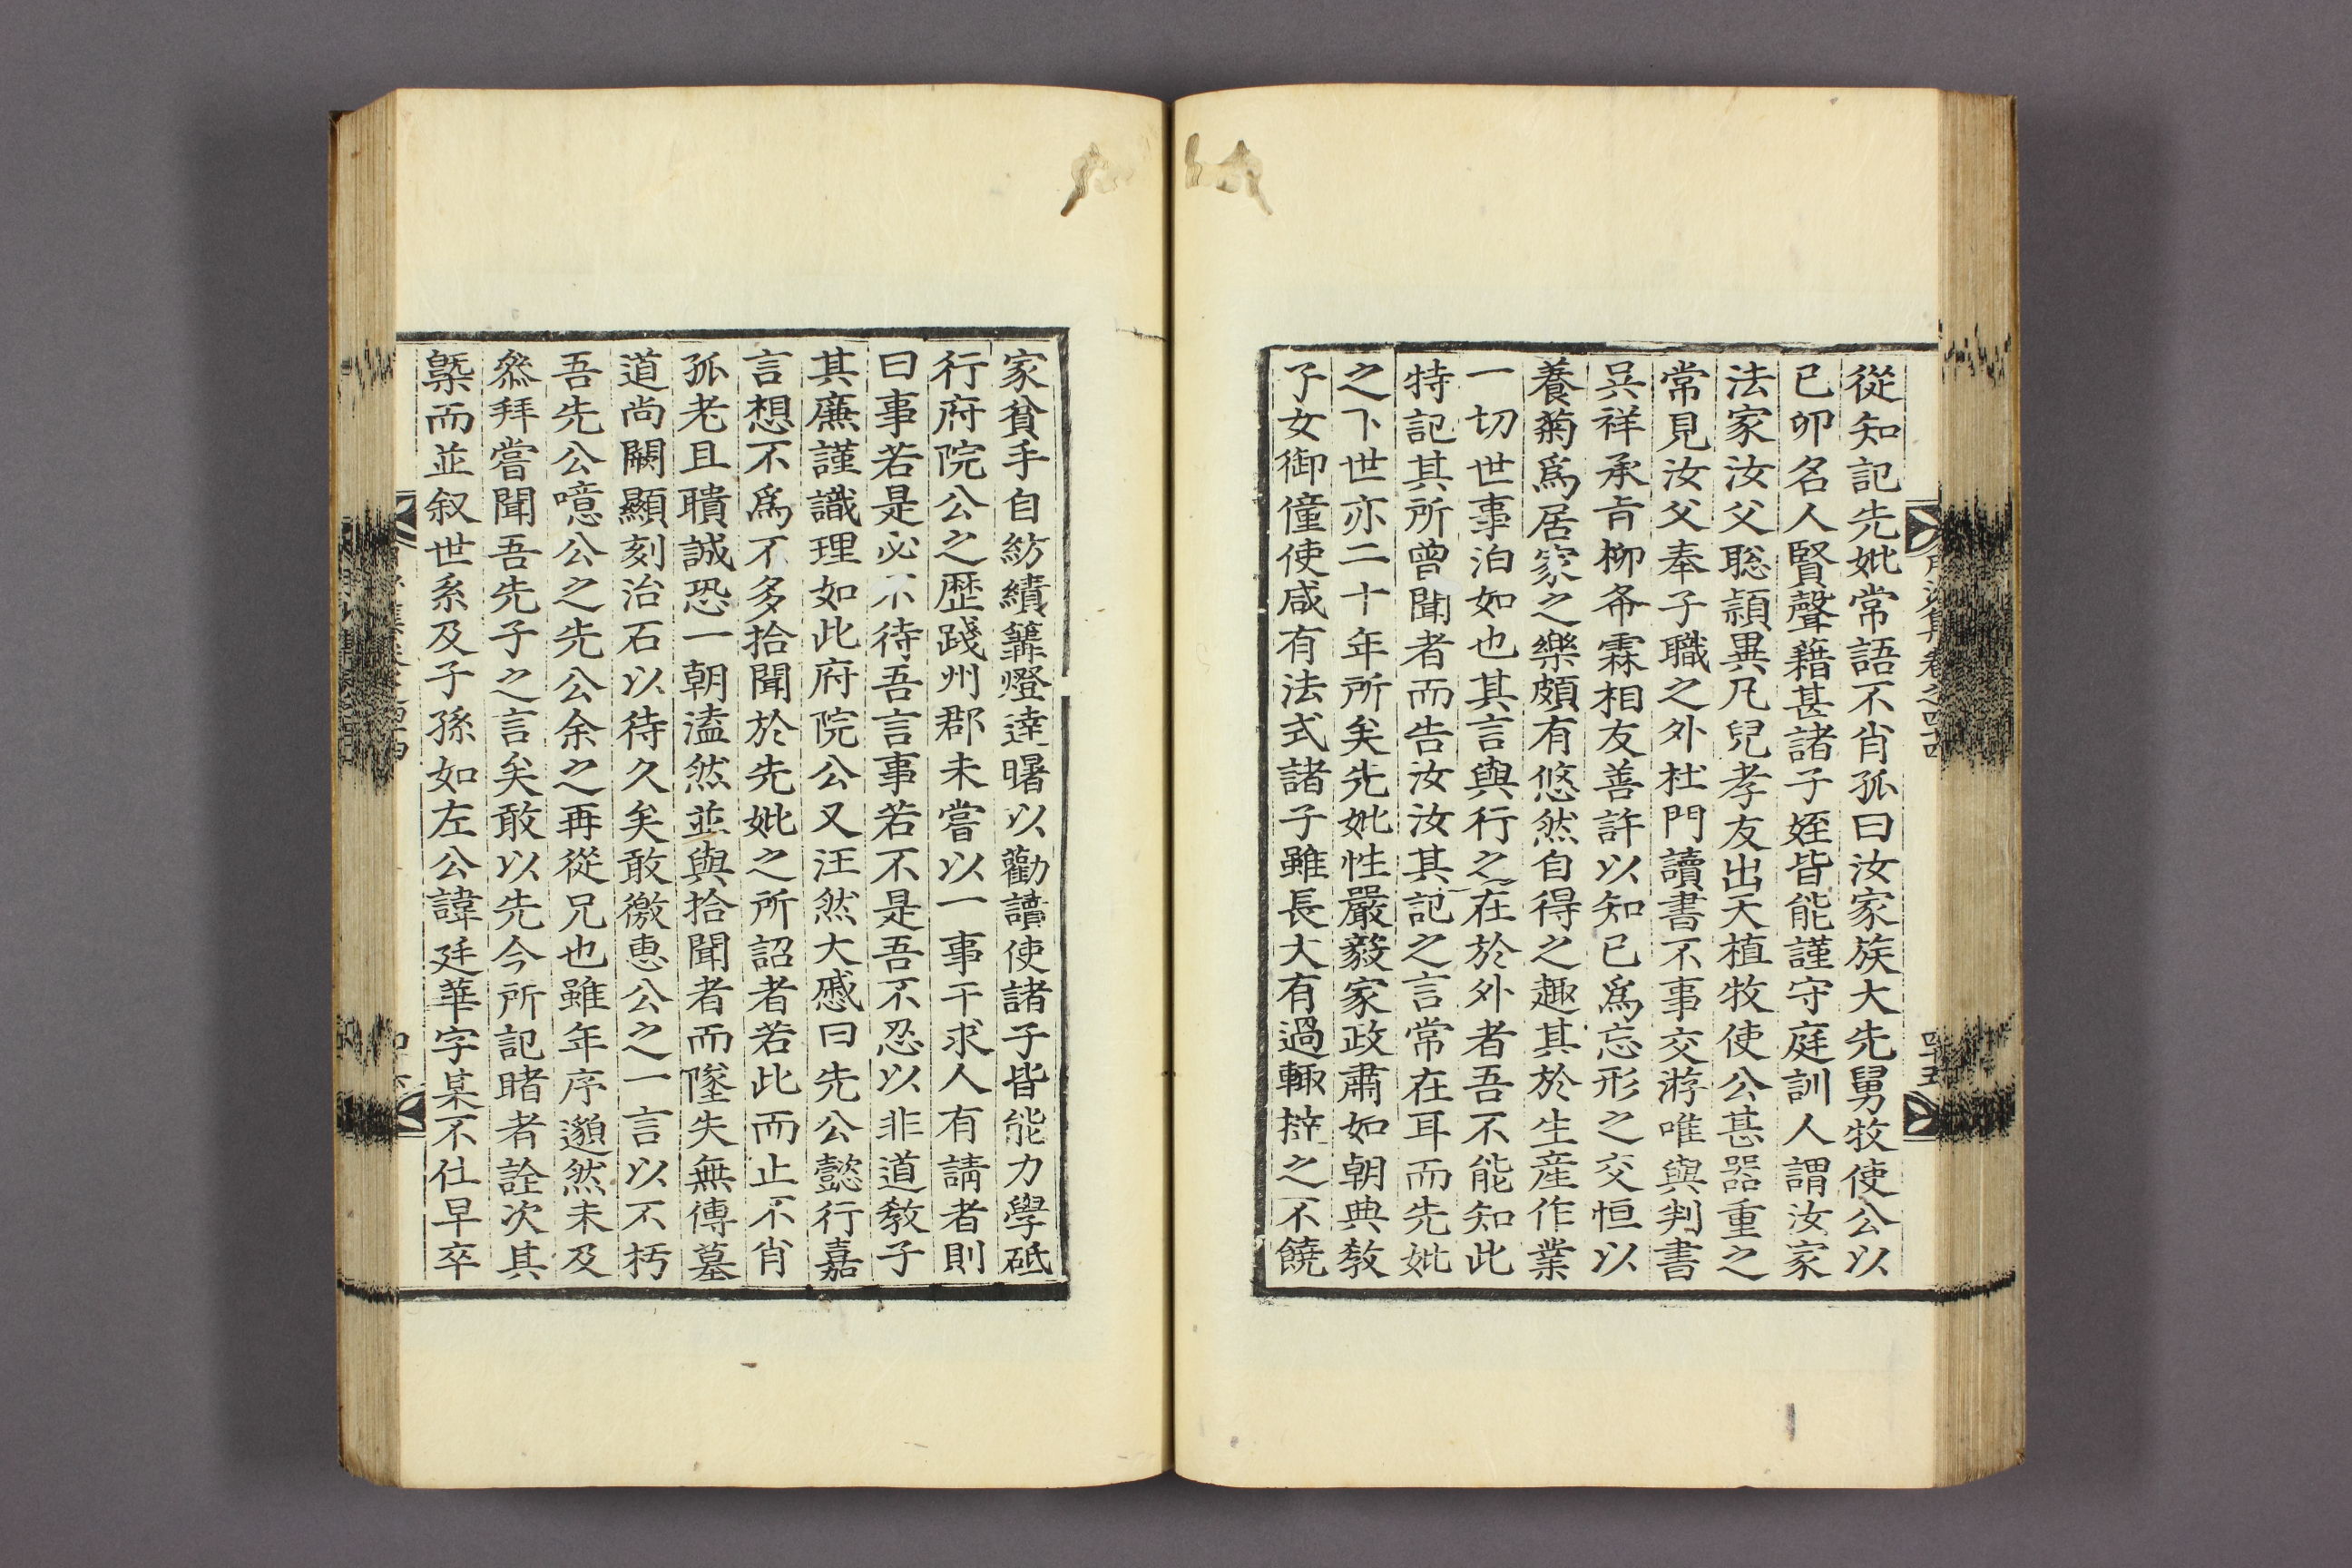 從知記先妣常語不肖孤曰汝家族大先舅牧使公以
已卯名人賢聲藉甚諸子姪皆能謹守庭訓人謂汝家
法家汝父聡頴異凡兒孝友出天植牧使公甚器重之
常見汝父奉子職之外杜門讀書不事交游唯與判書
吳祥承旨柳希霖相友善許以知已爲忘形之交恒以
養菊爲居家之樂頗有悠然自得之趣其於生産作業
一切世事泊如也其言與行之在於外者吾不能知此
特記其所曾聞者而告汝汝其記之言常在耳而先妣
之下世亦二十年所矣先妣性嚴毅家政肅如朝典敎
子女御僮使咸有法式諸子雖長大有過輒㧣之不饒
家貧手自紡績篝燈達曙以勸讀使諸子皆能力學砥
行府院公之歷踐州郡未嘗以一事干求人有請者則
曰事若是必不待吾言事若不是吾不忍以非道敎子
其廉謹識理如此府院公又汪然大慼曰先公懿行嘉
言想不爲不多拾聞於先妣之所詔者若此而止不肖
孤老且聵誠恐一朝溘然並與拾聞者而墜失無傳墓
道尚闕顯刻治石以待久矣敢徼惠公之一言以不朽
吾先公噫公之先公余之再從兄也雖年序邈然未及
叅拜嘗聞吾先子之言矣敢以先今所記睹者詮次其
槩而並叙世系及子孫如左公諱廷華字某不仕早卒
集卷之四十四
四十五